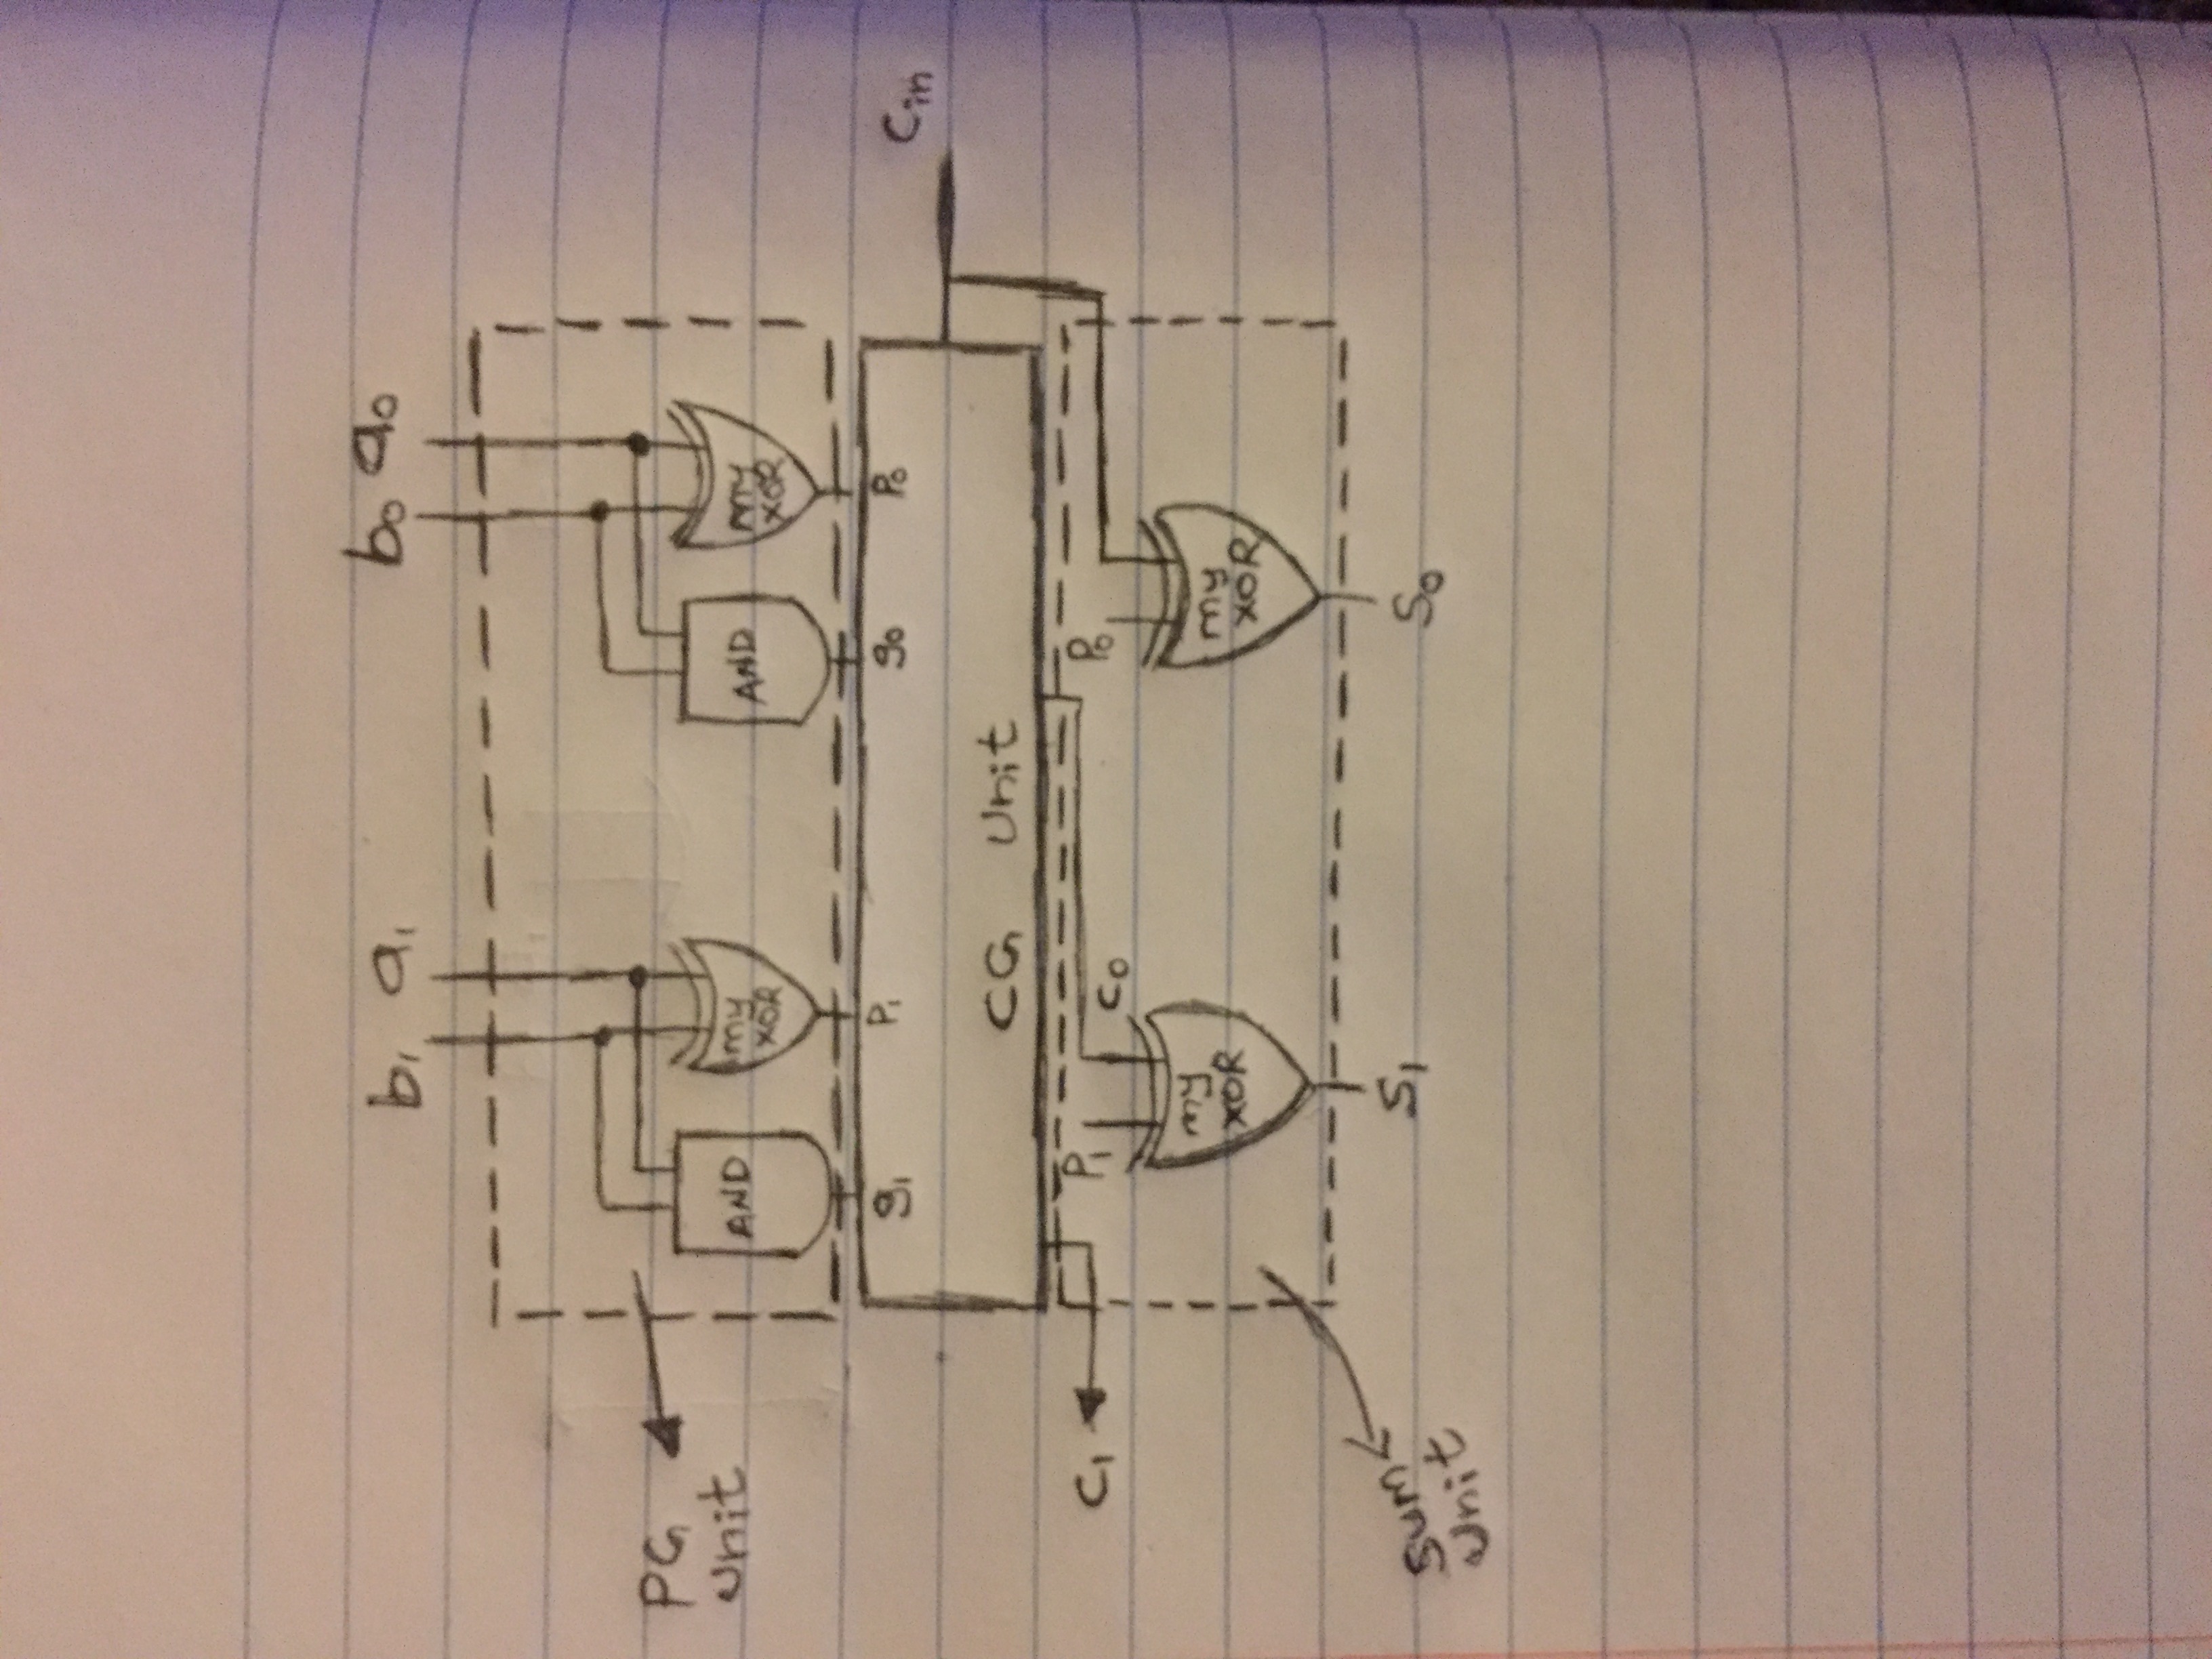 b₁ a₁ b₀ a₀
PG
Unit
AND my
XOR AND my
XOR
g₁ P₁ g₀ P₀
Cin
CG Unit
C₁ P₁ C₀ P₀
my
XOR my
XOR
Sum
Unit
S₁ S₀